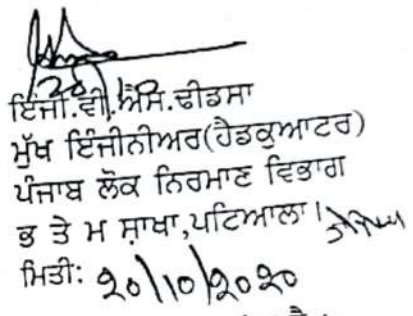 20/10
ਇੰਜੀ.ਵੀ.ਐਸ.ਢੀਡਸਾ
ਮੁੱਖ ਇੰਜੀਨੀਅਰ(ਹੈਡਕੁਆਟਰ)
ਪੰਜਾਬ ਲੋਕ ਨਿਰਮਾਣ ਵਿਭਾਗ
ਭ ਤੇ ਮ ਸ਼ਾਖਾ,ਪਟਿਆਲਾ।
ਮਿਤੀ: ੨੦/10/੨੦੨੦